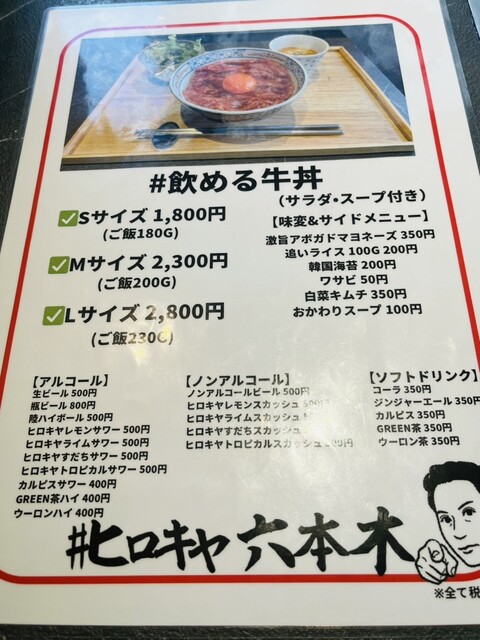 #飲める牛丼
(サラダ・スープ付き)
✅Sサイズ 1,800円
(ご飯180G)
✅Mサイズ 2,300円
(ご飯200G)
✅Lサイズ 2,800円
(ご飯230G)
【味変&サイドメニュー】
激旨アボガドマヨネーズ 350円
追いライス 100G 200円
韓国海苔 200円
ワサビ 50円
白菜キムチ 350円
おかわりスープ 100円
【アルコール】
生ビール 500円
瓶ビール 800円
陸ハイボール 500円
ヒロキヤレモンサワー 500円
ヒロキヤライムサワー 500円
ヒロキヤすだちサワー 500円
ヒロキヤトロピカルサワー 500円
カルピスサワー 400円
GREEN茶ハイ 400円
ウーロンハイ 400円
【ノンアルコール】
ノンアルコールビール 500円
ヒロキヤレモンスカッシュ 500円
ヒロキヤライムスカッシュ
ヒロキヤすだちスカッシュ
ヒロキヤトロピカルスカッシュ 500円
【ソフトドリンク】
コーラ 350円
ジンジャーエール 350円
カルピス 350円
GREEN茶 350円
ウーロン茶 350円
#ヒロキヤ 六本木
※全て税